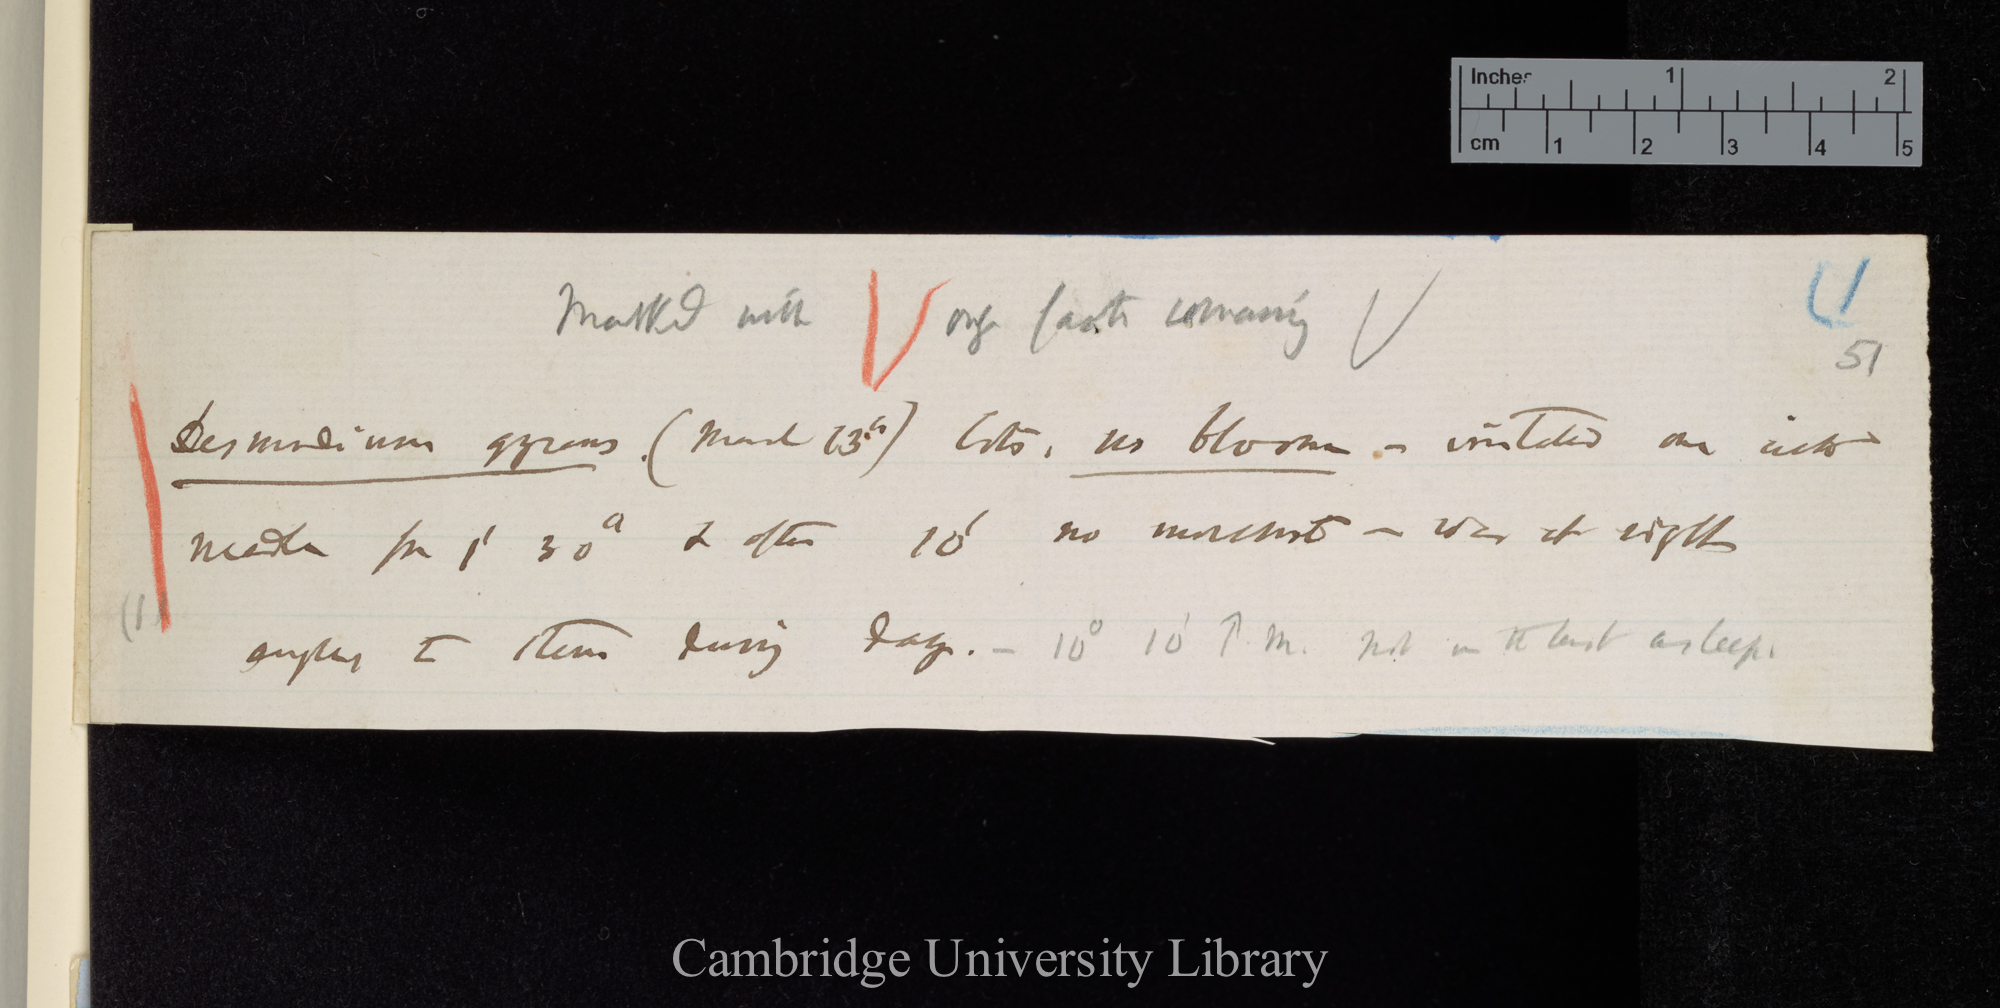 Inches 1 2
cm 1 2 3 4 5
Marked with V only facts
51
Desmodium gyrans. (March 23d) Cots. no bloom. – irritated one with
needle for 1' 30" & after 10' no movement – was at right
(1)
angles to stem during day. – 10° 10' P.M. not in the least asleep.
Cambridge University Library